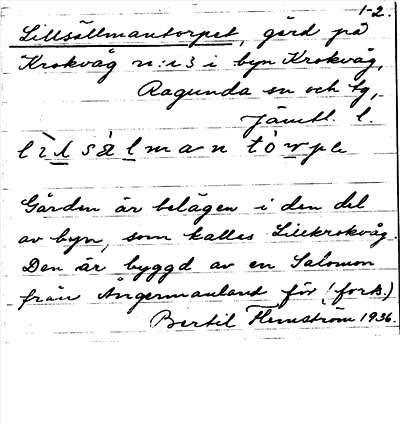 1-2.
Lillsällmantorpet, gård på
Krokvåg n:r 3 i byn Krokvåg,
Ragunda sn och tg,
Jämtl. l.
Gården är belägen i den del
av byn, som kallas Lillkrokvåg.
Den är byggd av en Salomon
från Ångermanland för (forts.)
Bertil Flemström 1936.